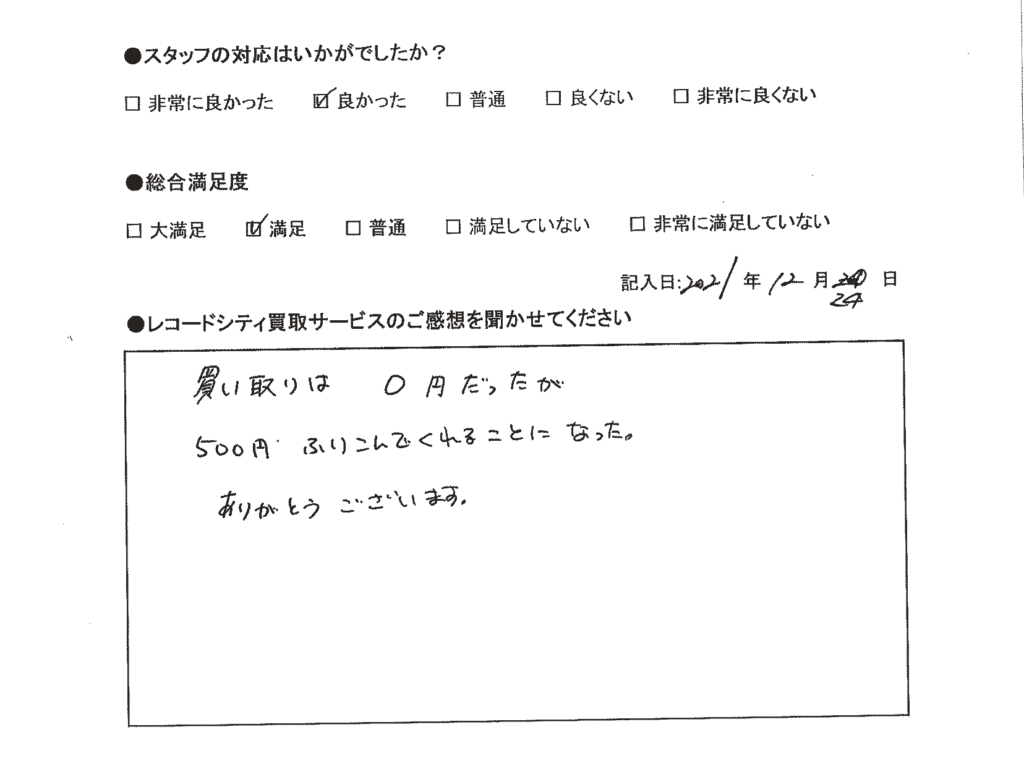 ●スタッフの対応はいかがでしたか？
□ 非常に良かった ☑ 良かった □ 普通 □ 良くない □ 非常に良くない
●総合満足度
□ 大満足 ☑ 満足 □ 普通 □ 満足していない □ 非常に満足していない
記入日:2021年12月24日
●レコードシティ買取サービスのご感想を聞かせてください
買い取りは 0円だったが
500円 ふりこんでくれることになった。
ありがとうございます。